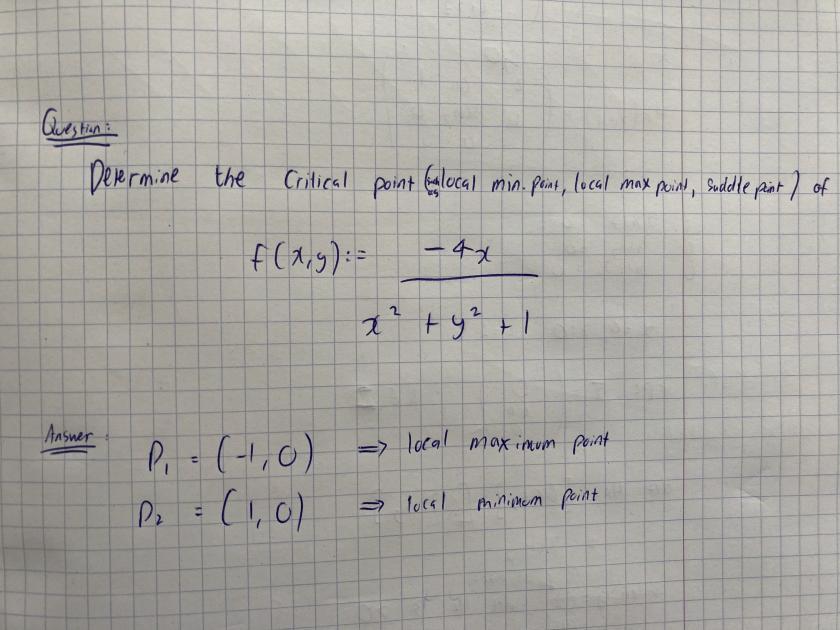 Question:
Determine the Critical point (such as local min. point, local max point, suddle point) of
f(x,y):= -4x / x² + y² + 1
Answer:
P₁ = (-1, 0) ⇒ local maximum point
P₂ = (1, 0) ⇒ local minimum point